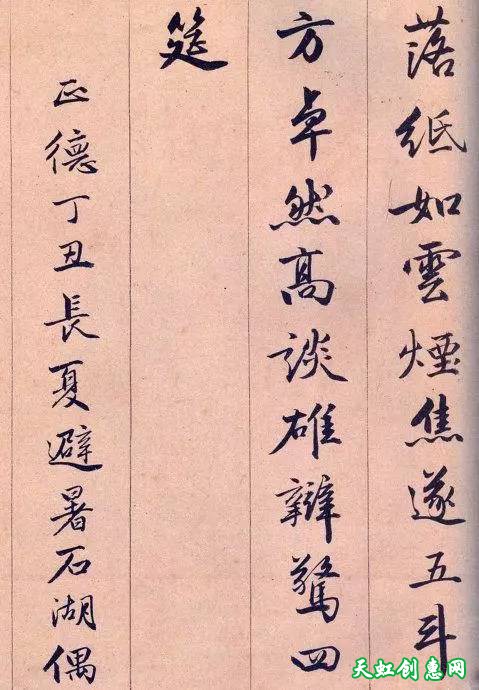 落紙如雲煙焦遂五斗
方卓然高談雄辯驚四
筵
正德丁丑長夏避暑石湖偶
天虹创惠网